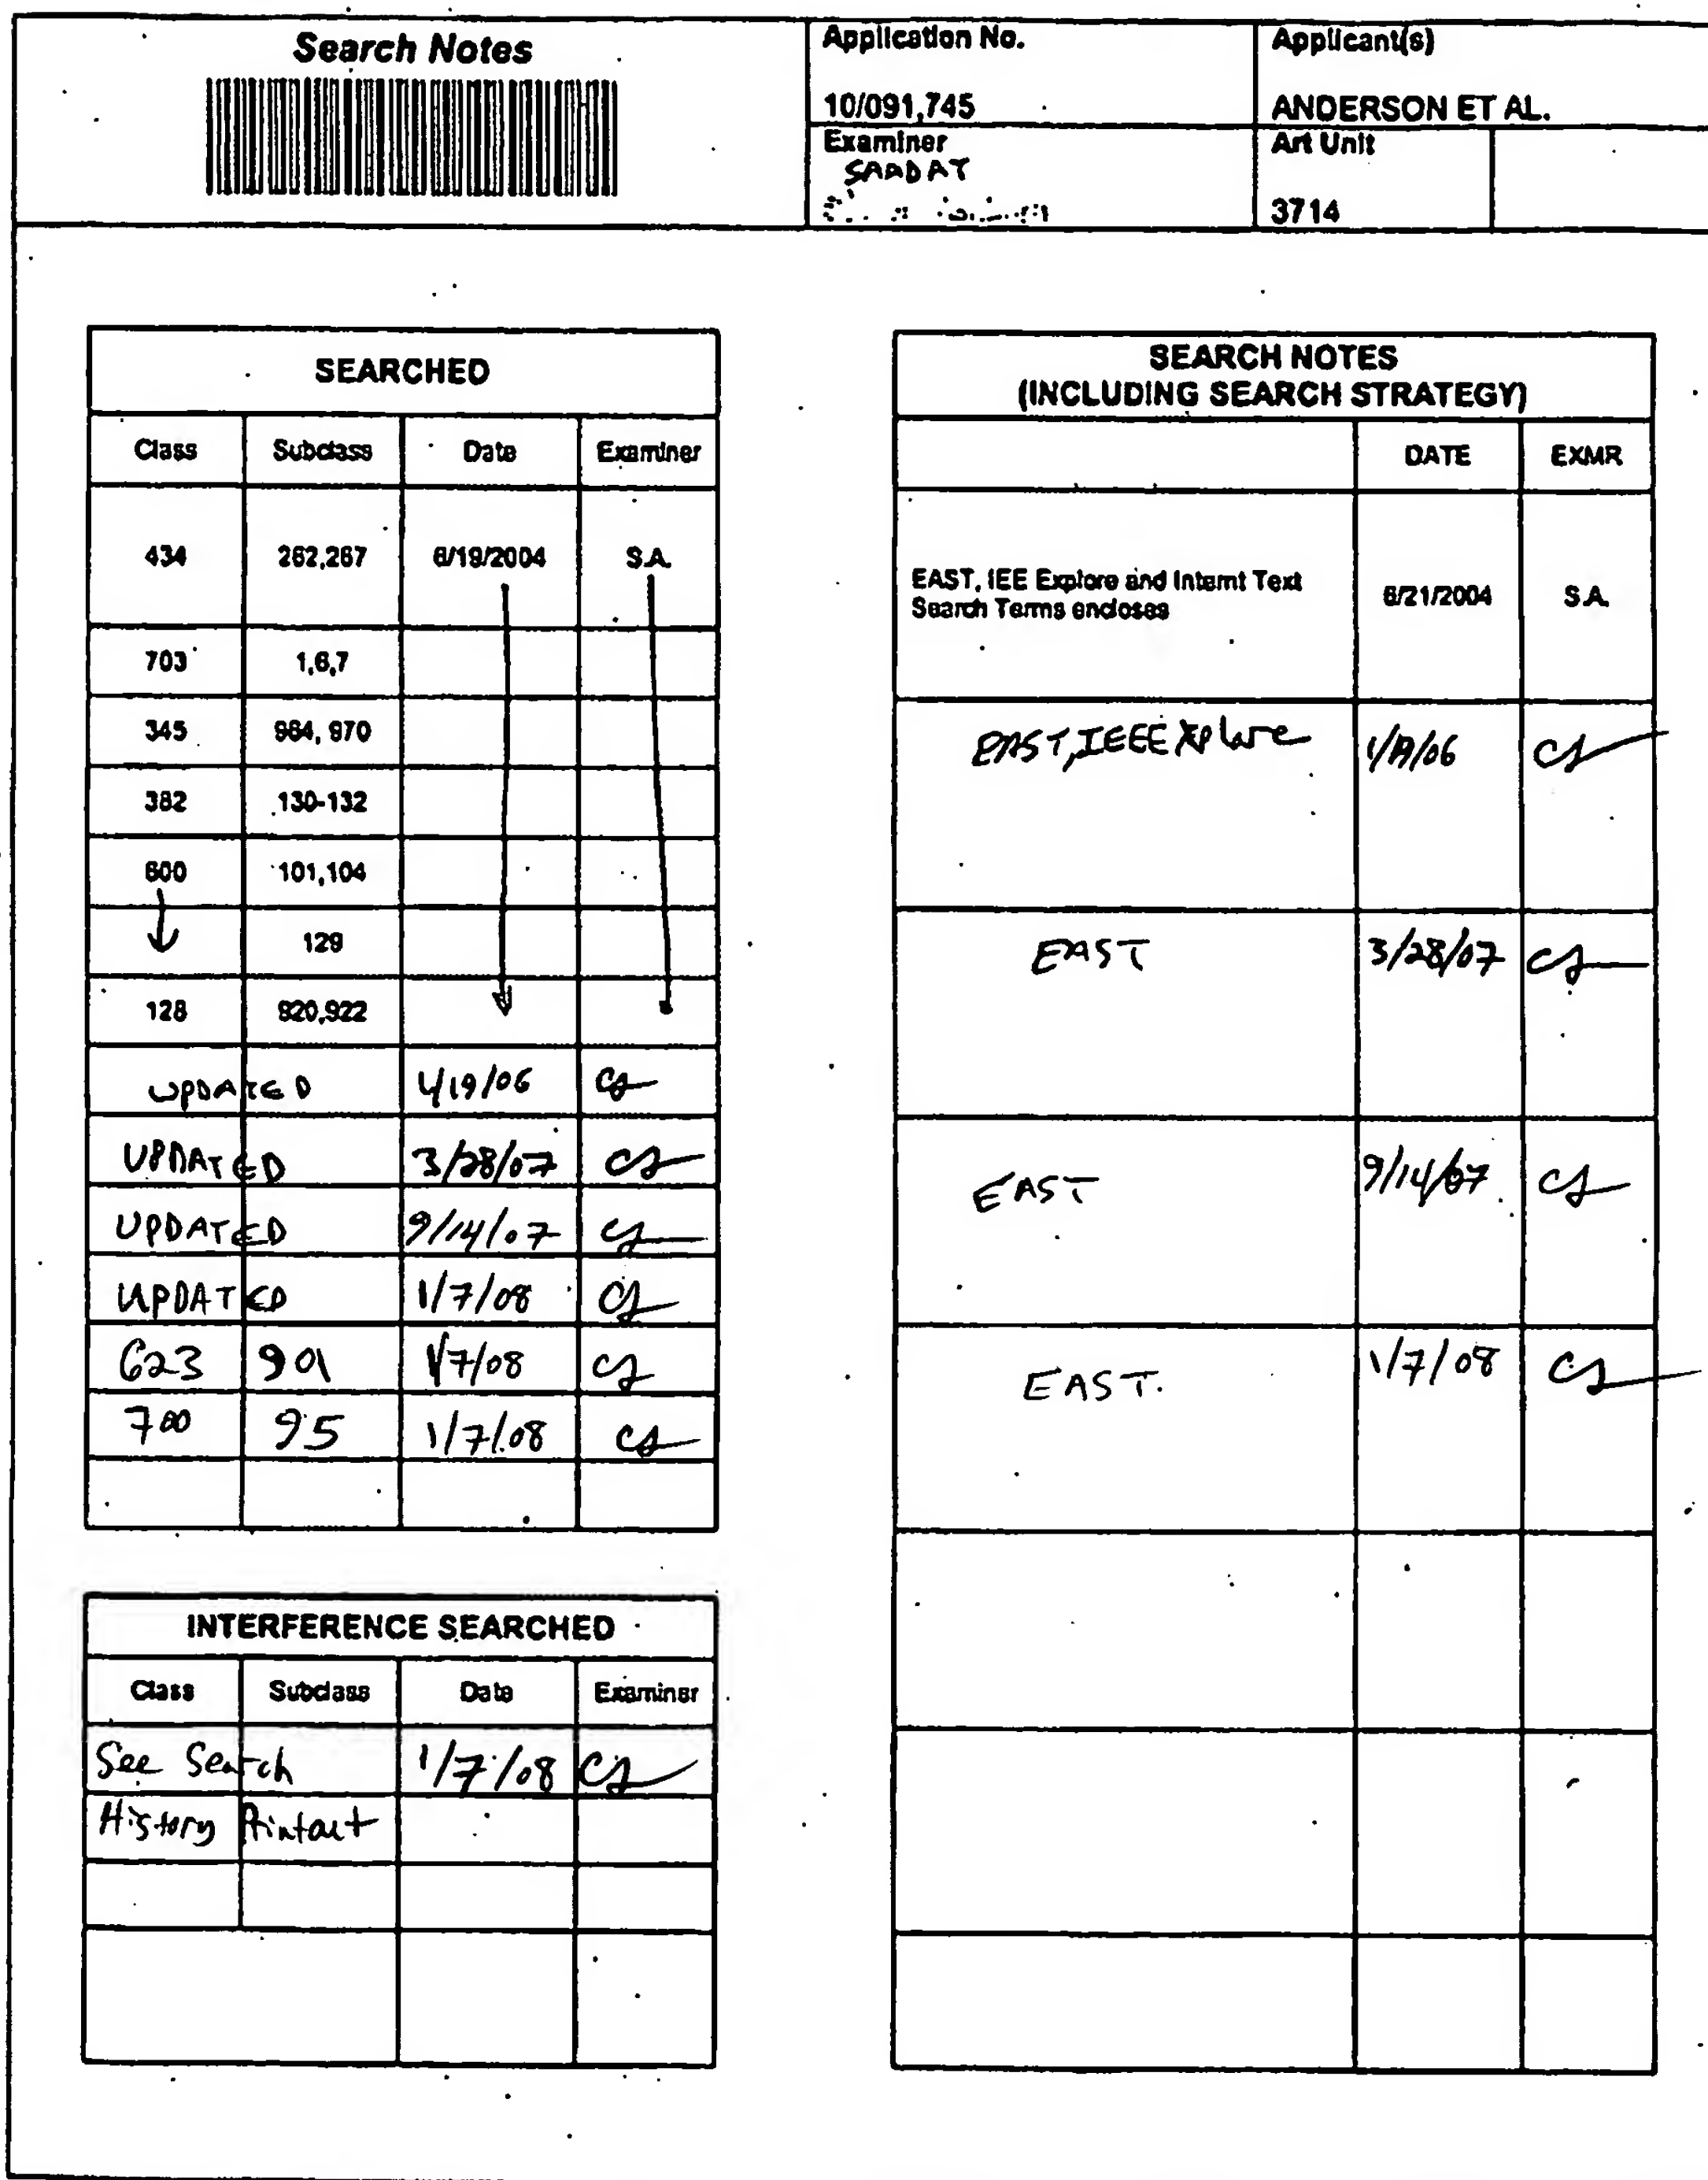 Search Notes
Application No.
10/091,745
Applicant(s)
ANDERSON ET AL.
Examiner
SAADAT
Art Unit
3714
SEARCHED
Class Subclass Date Examiner
434 262,267 6/19/2004 S.A.
703 1,6,7
345 964, 970
382 130-132
600 101,104
129
128 920,922
UPDATED 1/19/06 CS
UPDATED 3/28/07 CS
UPDATED 9/14/07 CS
UPDATED 1/7/08 CS
623 901 1/7/08 CS
700 95 1/7/08 CS
INTERFERENCE SEARCHED
Class Subclass Date Examiner
See Search 1/7/08 CS
History Printout
SEARCH NOTES
(INCLUDING SEARCH STRATEGY)
DATE EXMR
EAST, IEE Explore and Internt Text
Search Terms encloses
6/21/2004 S.A.
EAST, IEEE Xplore 1/19/06 CS
EAST 3/28/07 CS
EAST 9/14/07 CS
EAST. 1/7/08 CS